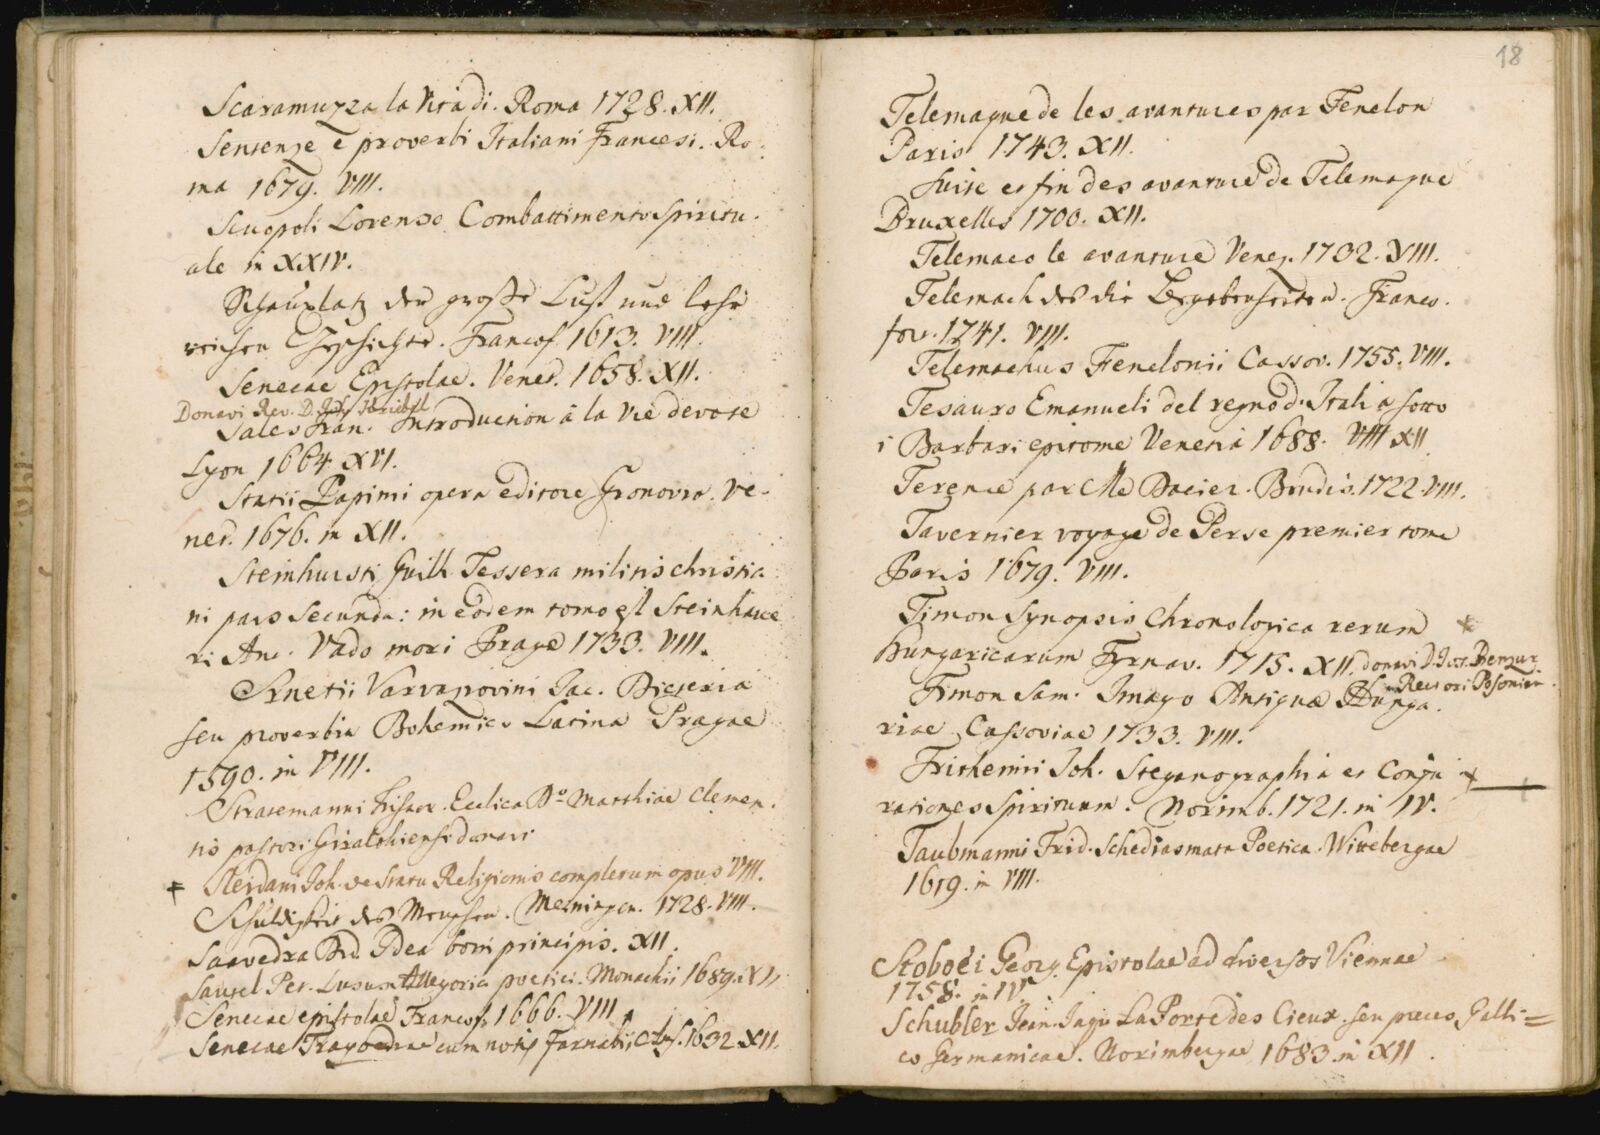 Scaramuzza la Vita di. Roma 1728. XII.
Sentenze e proverbi Italiani Francesi. Ro-
ma 1679. VIII.
Scupoli Lorenzo Combattimento Spiritu-
ale in XXIV.
Schauplatz der große Lust und lehr
reichen Geschichte. Francof. 1613. VIII.
Senecae Epistolae. Venet. 1658. XII.
Donavi Rev. D.
Sales Fran. Introduction à la vie devote
Lyon 1664. XVI.
Statii Papinii opera editore Gronovio. Ve-
net. 1676. in XII.
Steinhursti Guill. Tessera militis christia-
ni pars Secunda: in eodem tomo est
ri An. Vado mori Pragae 1733. VIII.
Srnetii Varvazovini Jac. Dicteria
seu proverbia Bohemico Latina Pragae
1590. in VIII.
Stratemanni Histor. Ecclica Do Matthiae Clemen-
tis pastori Giraltohiensi donavi
Sleidani Joh. de Statu Religionis completum opus VIII.
Schuldigkeit des Menschen. Meiningen. 1728. VIII.
Saavedra Did. Idea boni principis. XII.
Sautel Pet. Lusum Allegorici poetici. Monachii 1689. XII.
Senecae epistolae Francof. 1666. VIII
Senecae Tragoediae cum notis Farnabii, 1632. XII.
18
Telemaque de les avantures par Fenelon
Paris 1743. XII.
Suite et fin des avanture de Telemaque
Bruxelles 1700. XII.
Telemaco le avanture Venez. 1702. VIII.
Telemach des die Begebenheiten. Franco-
fort. 1741. VIII.
Telemachus Fenelonii Cassov. 1755. VIII.
Tesauro Emanueli del regno d'Italia sotto
i Barbari epitome Venetia 1688. VIII XII
Terence par Me Dacier. 1722. VIII.
Tavernier voyage de Perse premier tome
Paris 1679. VIII.
Timon Synopsis Chronologica rerum
Hungaricarum Tyrnav. 1715. XII. donavi D. Jos. Benzur
Rectori Posonien.
Timon Sam. Imago Antiquae Hunga-
riae Cassoviae 1733. VIII.
Trithemii Joh. Steganographia et Conju
rationes Spirituum. Norimb. 1721. in IV.
Taubmanni Frid. Schediasmata Poetica. Wittebergae
1619. in VIII.
Stoboei Georg. Epistolae ad diversos Viennae
1758. in IV
Schubler Jean Jaqu La Porte des Cieux seu preces Galli=
co Germanicae. Norimbergae 1683. in XII.